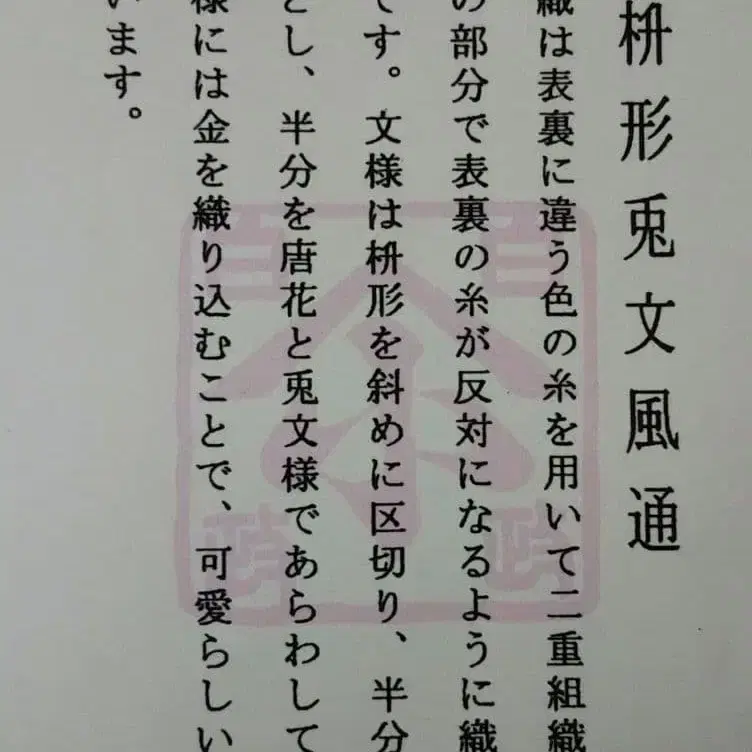 枡形兎文風通
織は表裏に違う色の糸を用いて二重組織
の部分で表裏の糸が反対になるように織
です。文様は枡形を斜めに区切り、半分
とし、半分を唐花と兎文様であらわして
様には金を織り込むことで、可愛らしい
います。